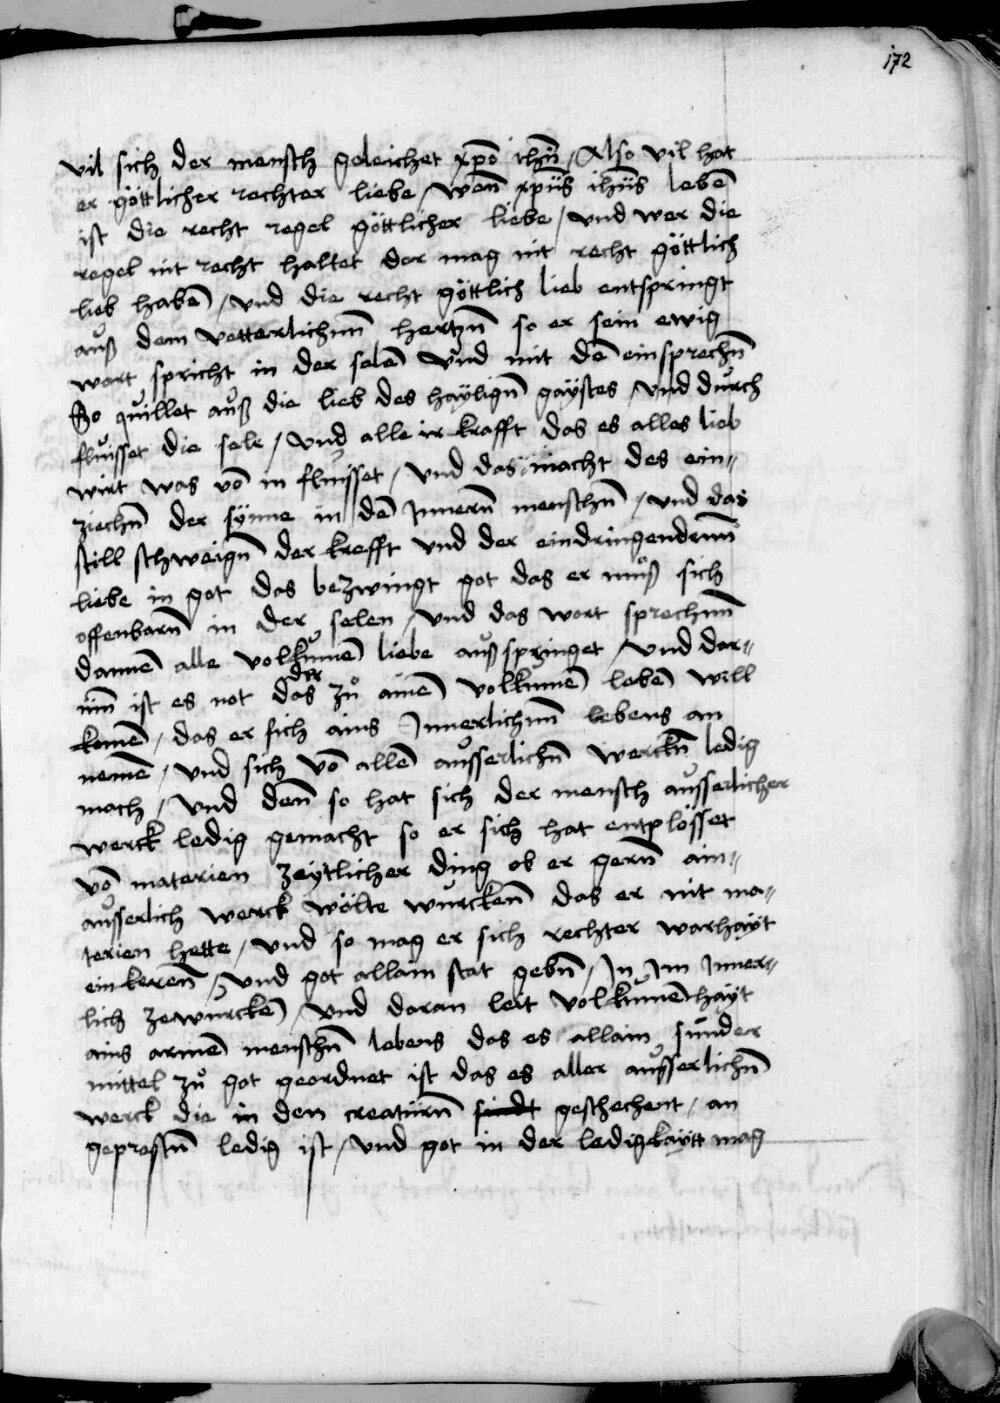 172
vil sich der mensch geleichet xpō ihū / Also vil hat
er göttlicher rechter liebe / wen̄ xpūs ihūs lebē
ist die recht regel göttlicher liebe / vnd wer die
regel nit recht haltet der mag nit recht göttlich
lieb habē / vnd die recht göttlich lieb entspringt
auß dem vetterlichm̄ hertzn̄ so er sein ewig
wort spricht in der selē Vnd mit dē einsprechn̄
So quillet auß die lieb des haylign̄ gaystes vnd durch
fluisset die sele / vnd alle ir krafft das es alles lieb
wirt was vō in fluisset / vnd das macht des ein⸗
ziechn̄ der synne in dē Innern̄ menschn̄ / vnd das
still schweign̄ der krefft vnd der eindringendenn̄
liebe in got das bezwingt got das er muͦß sich
offenbarn̄ in der selen / vnd das wort sprechenn̄
dannē alle volkumē liebe auß springet / vnd dar⸗
um̄ ist es not das der zuͦ ainē volkumē lebē will
komē / das er sich ains Innerlichenn̄ lebens an
nemē / vnd sich vō allē ausserlichn̄ werckn̄ ledig
mach / vnd den̄ so hat sich der mensch ausserlicher
werck ledig gemacht so er sich hat entplösset
vō materien zeytlicher ding ob er gern̄ ain⸗
ausserlich werck wölte wurcken̄ das er nit ma⸗
terien hette / vnd so mag er sich rechter warhayt
ein keren̄ / vnd got allain stat gebn̄ / In Im Inner⸗
lich zewurckē / vnd daran leit volkumēhayt
ains armē menschn̄ lebens das es allain sunder
mittel zuͦ got geordnet ist das es aller ausserlichn̄
werck die in den creaturn̄ sindt geschechent / an
geprestn̄ ledig ist / vnd got in der ledigkaytt mag